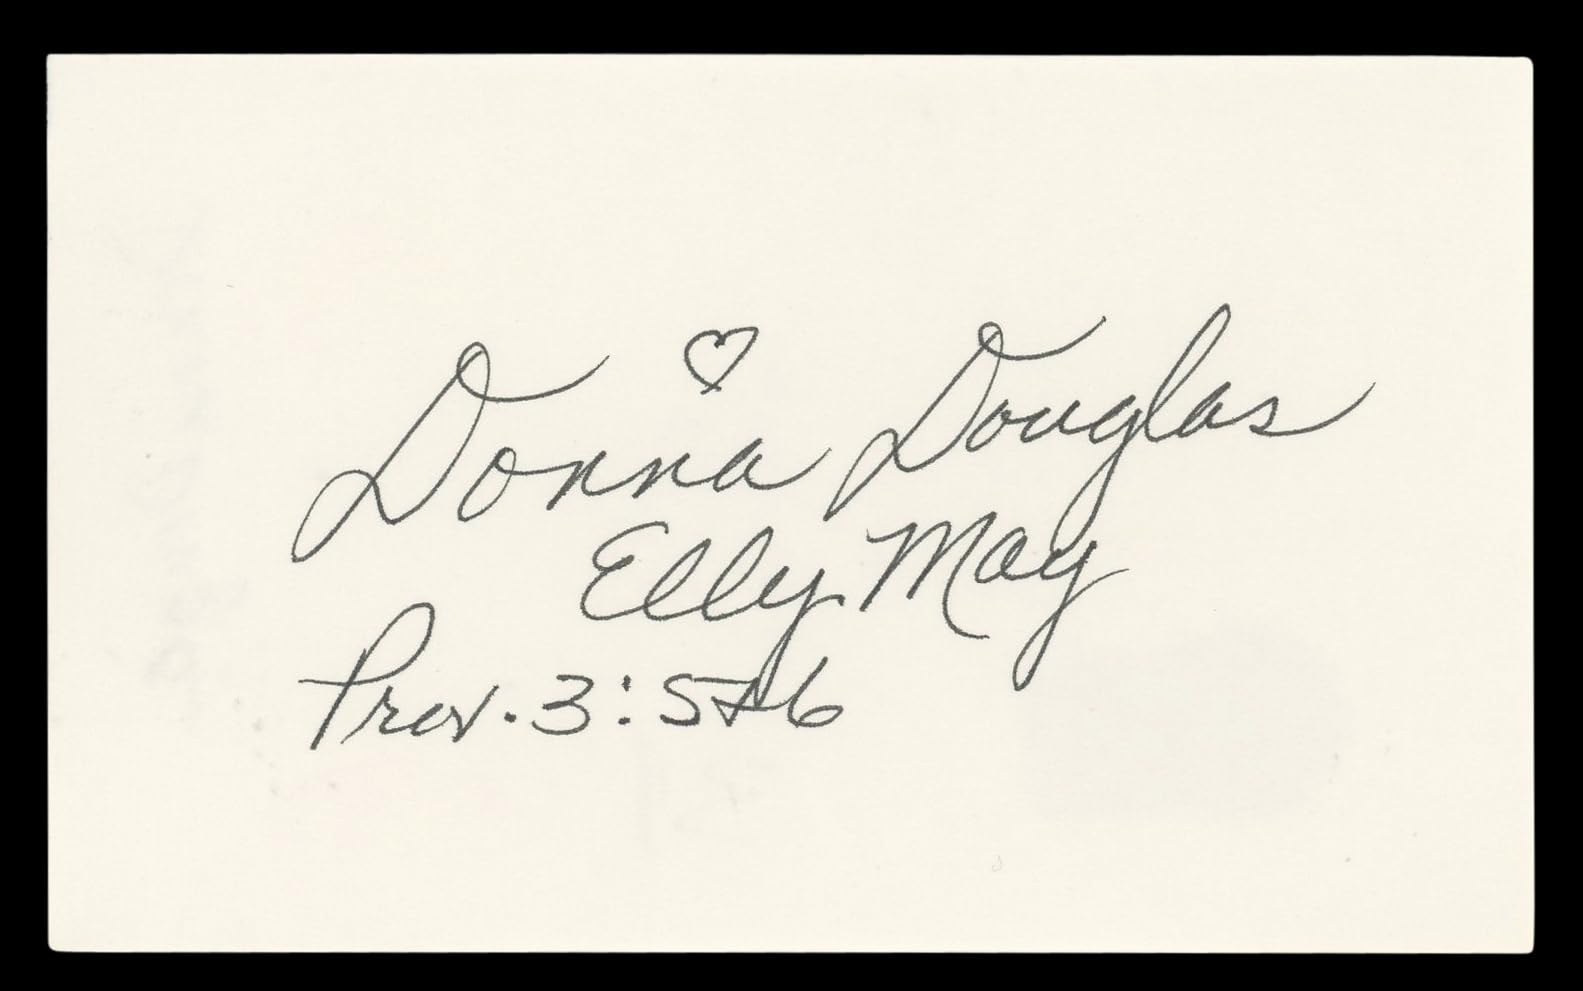 Donna Douglas
Elly May
Prov. 3:5+6